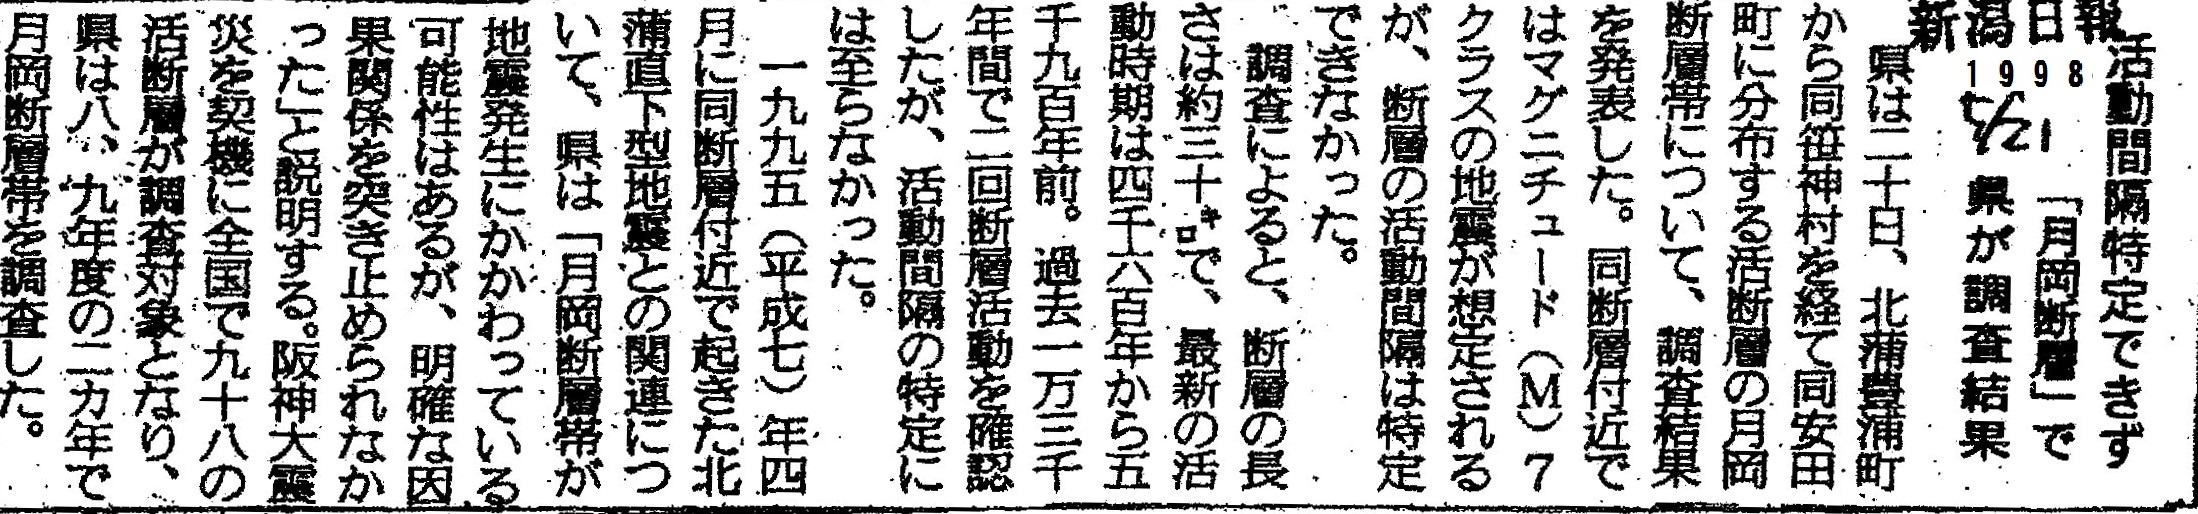 新潟日報
1998
5/21
活動間隔特定できず
「月岡断層」で
県が調査結果
県は二十日、北蒲豊浦町
から同笹神村を経て同安田
町に分布する活断層の月岡
断層帯について、調査結果
を発表した。同断層付近で
はマグニチュード（M）7
クラスの地震が想定される
が、断層の活動間隔は特定
できなかった。
調査によると、断層の長
さは約三十㌔で、最新の活
動時期は四千六百年から五
千九百年前。過去一万三千
年間で二回断層活動を確認
したが、活動間隔の特定に
は至らなかった。
一九九五（平成七）年四
月に同断層付近で起きた北
蒲直下型地震との関連につ
いて、県は「月岡断層帯が
地震発生にかかわっている
可能性はあるが、明確な因
果関係を突き止められなか
った」と説明する。阪神大震
災を契機に全国で九十八の
活断層が調査対象となり、
県は八、九年度の二カ年で
月岡断層帯を調査した。